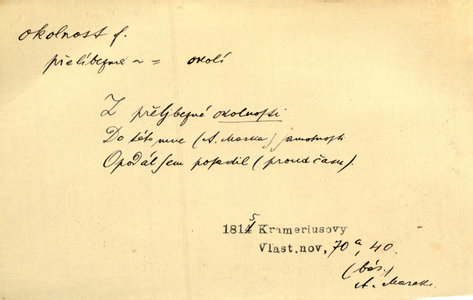 okolnost f.
přelíbezné ~ = okolí
Z přeljbezné okolnosti
Do této mne (A. Marka) samotnosti
Opodál sem posadil (proud času).
1815 Krameriusovy
Vlast. nov, 70 a, 40.
(bás.
A. Marek